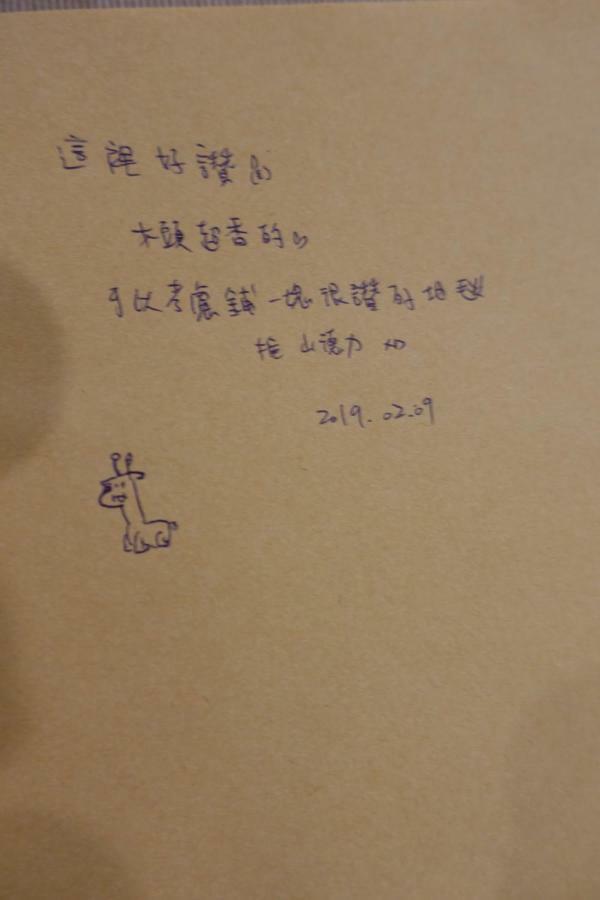 這裡好讚
木頭超香的
可以考慮鋪一塊很讚的地毯
山德力
2019.02.09